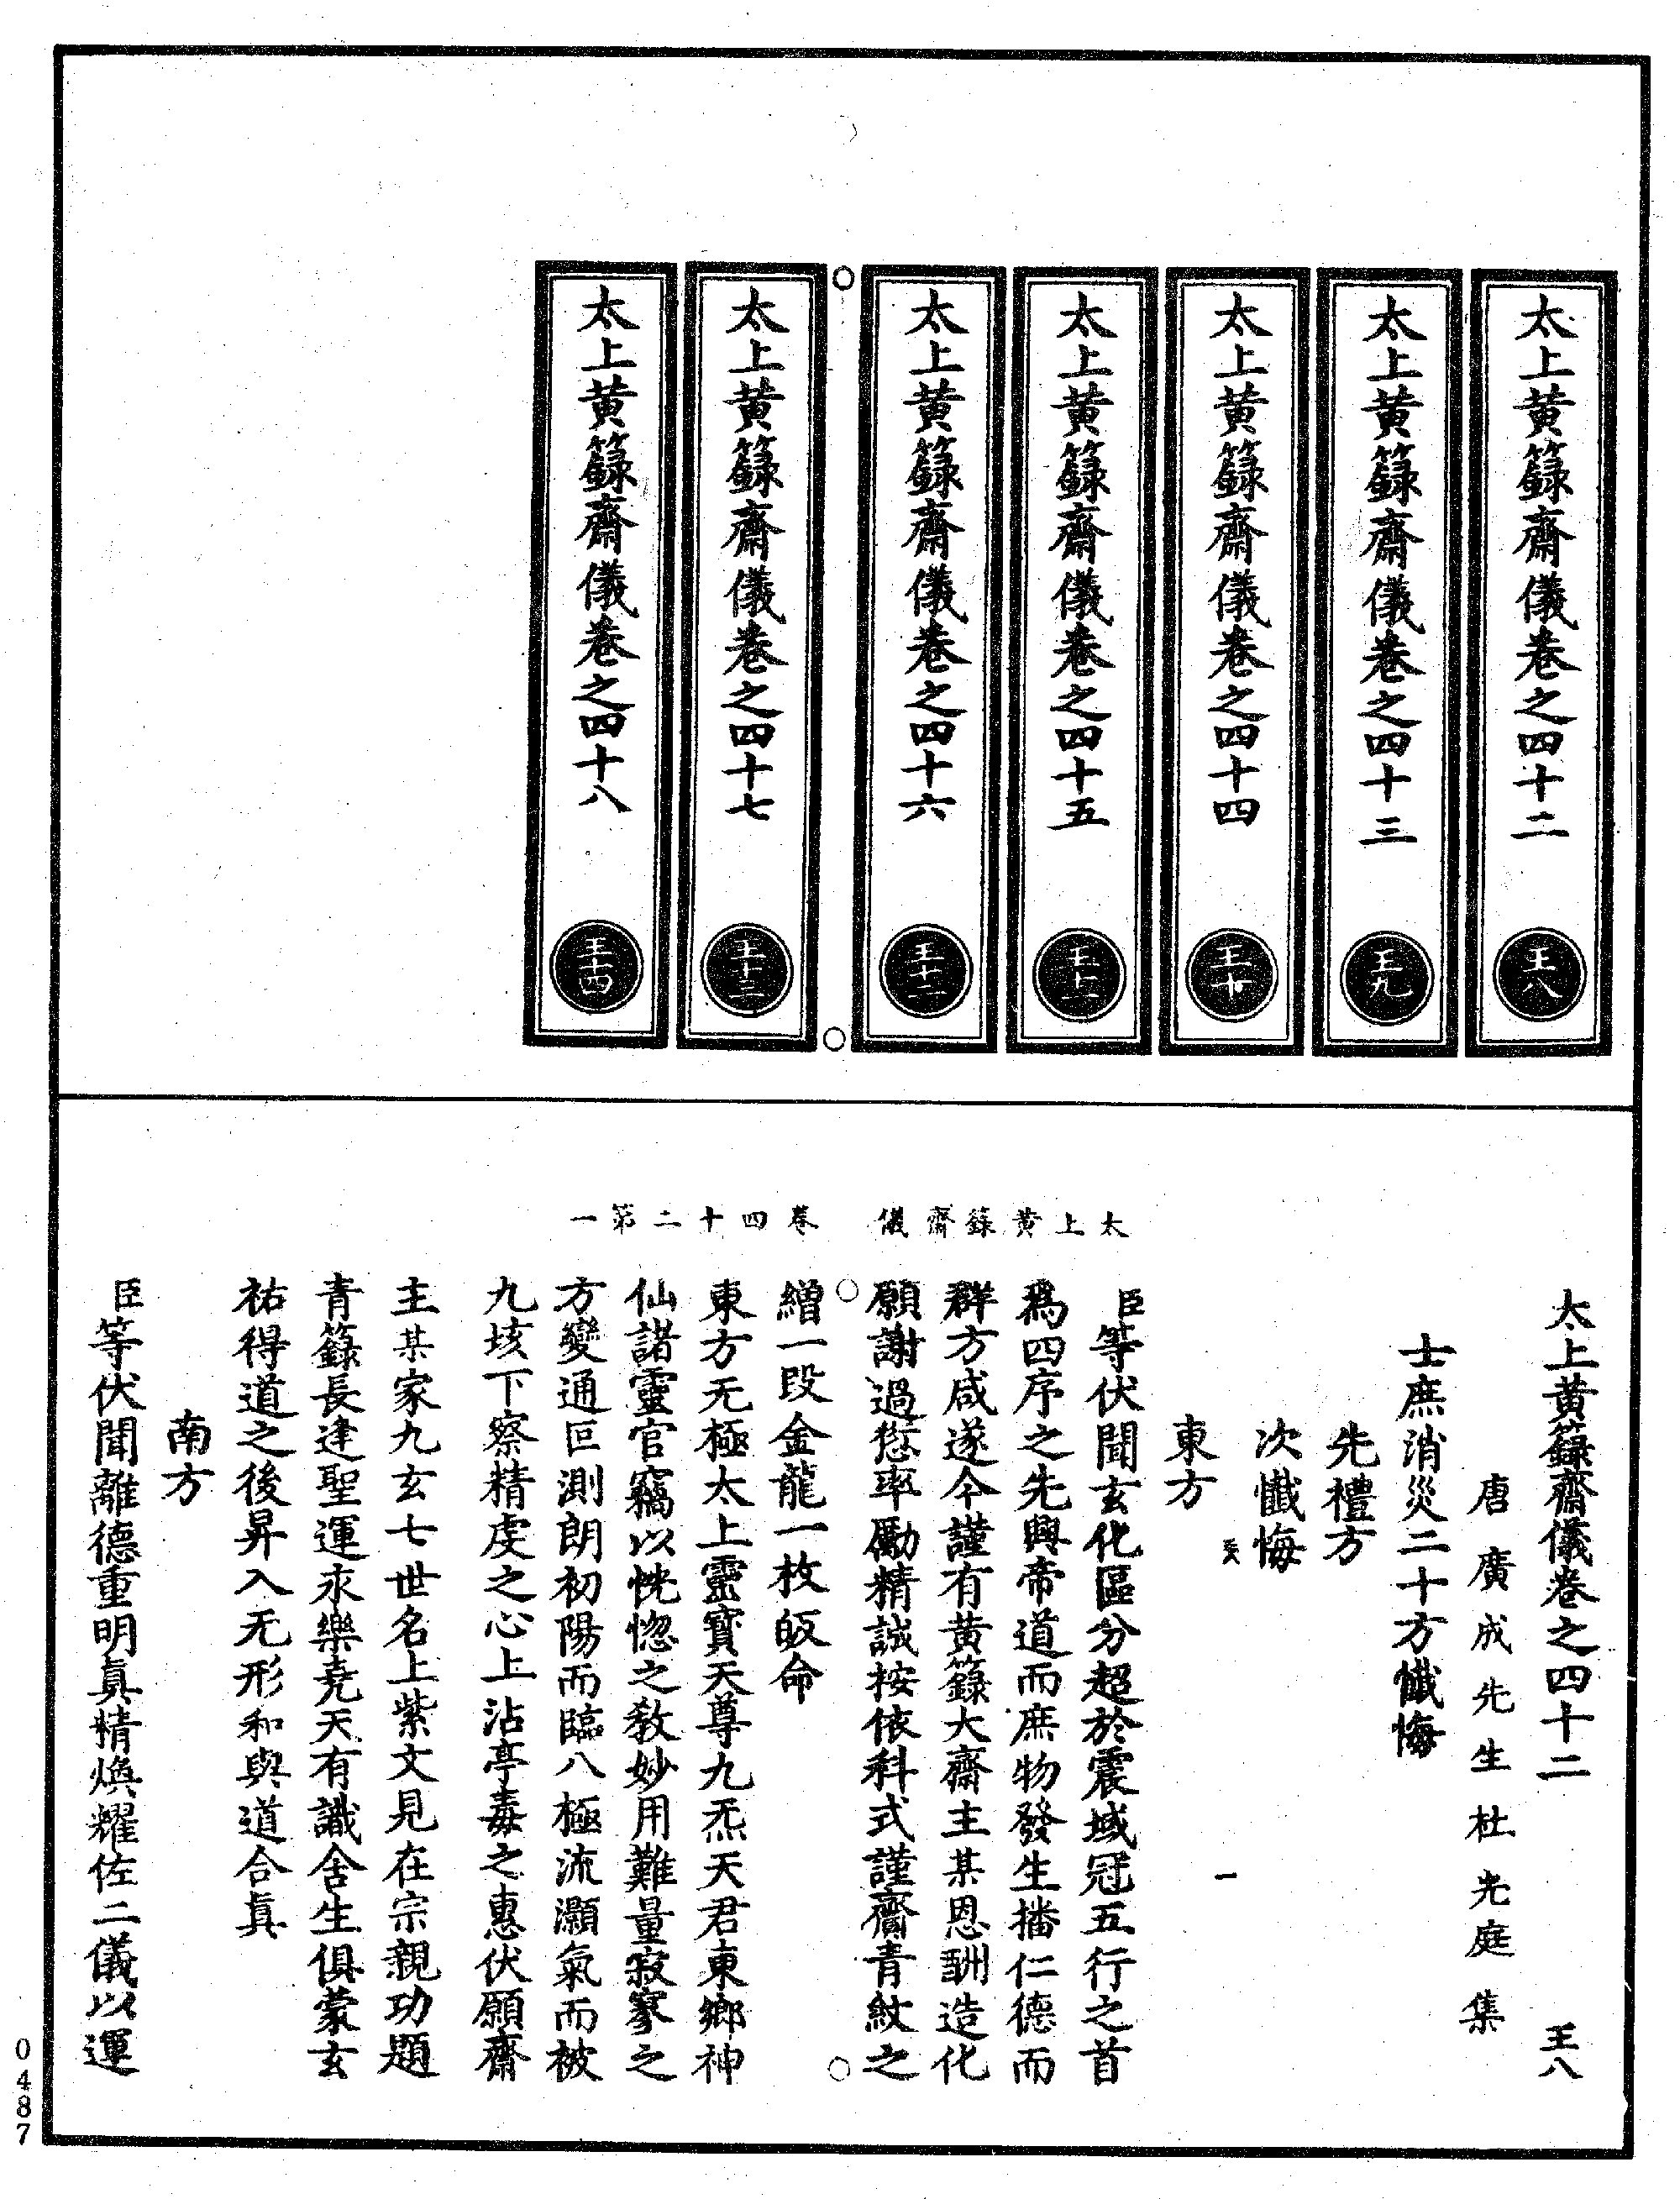 太上黄籙齋儀卷之四十二
王八
太上黄籙齋儀卷之四十三
王九
太上黄籙齋儀卷之四十四
王十
太上黄籙齋儀卷之四十五
王十一
太上黄籙齋儀卷之四十六
王十二
太上黄籙齋儀卷之四十七
王十三
太上黄籙齋儀卷之四十八
王十四
太上黄籙齋儀 卷四十二第一
太上黄籙齋儀卷之四十二 王八
唐廣成先生杜光庭集
士庶消災二十方懺悔
先禮方
次懺悔
王八 一
東方
臣等伏聞玄化區分超於震域冠五行之首
爲四序之先興帝道而庶物發生播仁德而
群方咸遂今謹有黄籙大齋主某恩酬造化
願謝過愆率勵精誠按依科式謹齎青紋之
繒一段金龍一枚皈命
東方无極太上靈寶天尊九炁天君東鄉神
仙諸靈官竊以恍惚之教妙用難量寂寥之
方變通叵測朗初陽而臨八極流灝氣而被
九垓下察精虔之心上沾亭毒之惠伏願齋
主某家九玄七世名上紫文見在宗親功題
青籙長逢聖運永樂堯天有識含生俱蒙玄
祐得道之後昇入无形和與道合真
南方
臣等伏聞離德重明真精煥耀佐二儀以運
0487